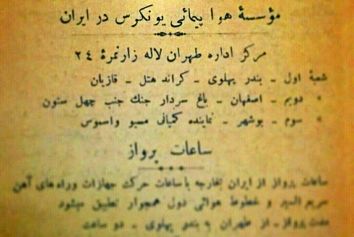 مؤسسهٔ هوا پیمائی یونکرس در ایران
مرکز اداره طهران لاله زار نمرهٔ ٢٤
شعبهٔ اول ـ بندر پهلوی ـ کراند هتل ـ قازیان
» دویم ـ اصفهان ـ باغ سردار جنك جنب چهل ستون
» سوم ـ بوشهر ـ نماینده کمپانی مسیو واسموس
ساعات پرواز
ساعات پرواز از ایران بخارجه با ساعات حرکت جهازات و راه های آهن
سریع السیر و خطوط هوائی دول همجوار تطبیق میشود
مدت پرواز ـ از طهران به بندر پهلوی ـ دو ساعت